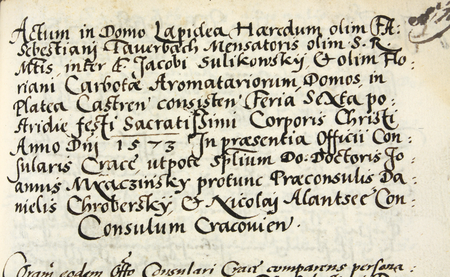 Actum in Domo Lapidea Hæredum olim FA:
Sebestiani Tauerbach Mensatoris olim S. R
Mtis, inter F. Jacobi Sulikowskÿ, & olim Flo:
riani Carbotæ Aromatariorum Domos, in
Platea Castren consisten Feria Sexta po:
stridie festi Sacratissimi Corporis Christi
Anno Dni 1573 In præsentia Officii Con:
sularis Cracc, utpote Sptlium Do: Doctoris Jo:
annis Mxaczinsky protunc Præconsulis Da:
nielis Chrobersky, & Nicolaj Alantsee Con:
Consulum Cracouien.
Coram eodem Offo Consulari Cracc comparens persona: